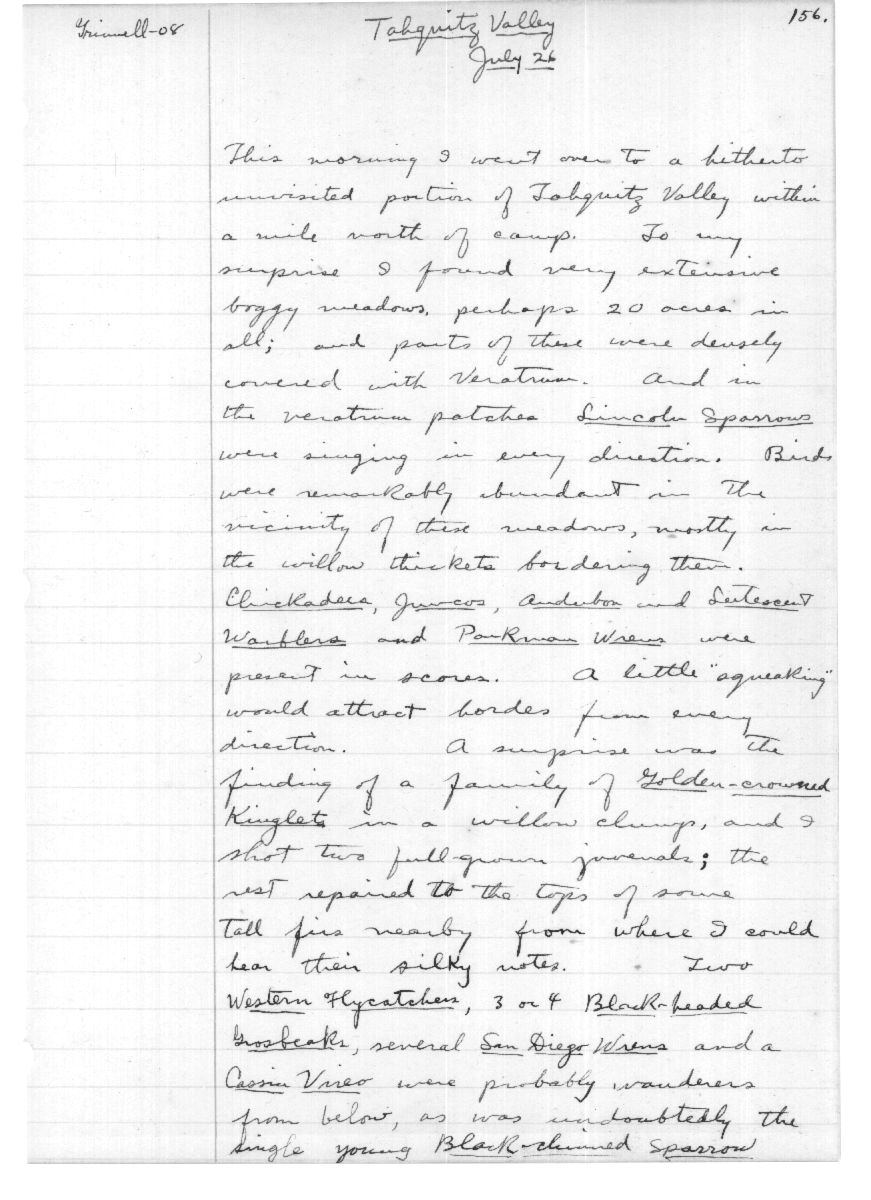 Grinnell-08
Tahquitz Valley
156.
July 26
This morning I went over to a hitherto
unvisited portion of Tahquitz Valley within
a mile north of camp. To my
surprise I found very extensive
boggy meadows, perhaps 20 acres in
all; and parts of these were densely
covered with Veratrum. And in
the veratrum patches Lincoln Sparrows
were singing in every direction. Birds
were remarkably abundant in the
vicinity of these meadows, mostly in
the willow thickets bordering them.
Chickadees, Juncos, Audubon and Lutescent
Warblers and Parkman Wrens were
present in scores. A little "squeaking"
would attract hordes from every
direction. A surprise was the
finding of a family of Golden-crowned
Kinglets in a willow clump, and I
shot two full-grown juvenals; the
rest repaired to the tops of some
tall firs nearby from where I could
hear their silky notes. Two
Western Flycatchers, 3 or 4 Black-headed
Grosbeaks, several San Diego Wrens and a
Cassin Vireo were probably wanderers
from below, as was undoubtedly the
single young Black-chinned Sparrow